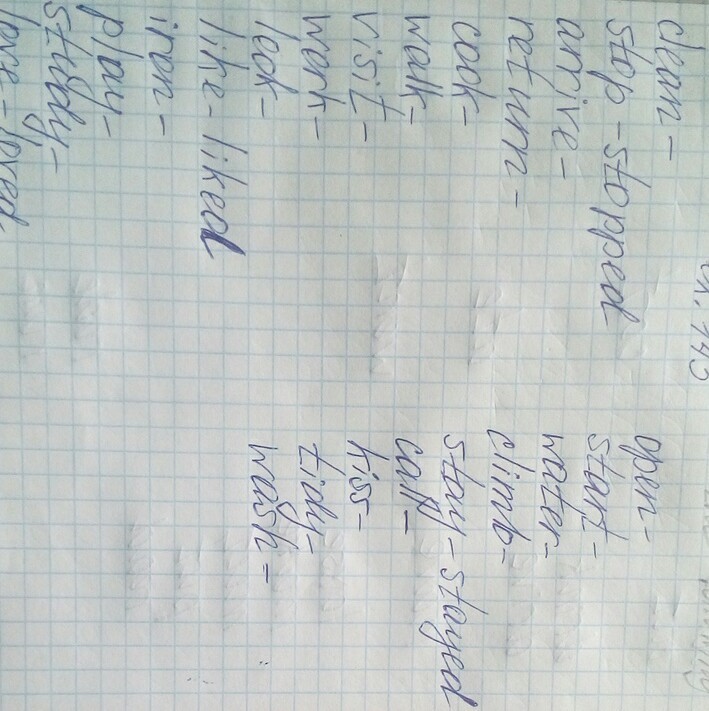 clean-
stop-stopped
arrive-
return-
cook-
walk-
visit-
work-
look-
like-liked
iron-
play-
study-
love-loved
open-
start-
water-
climb-
stay-stayed
call-
kiss-
tidy-
wash-